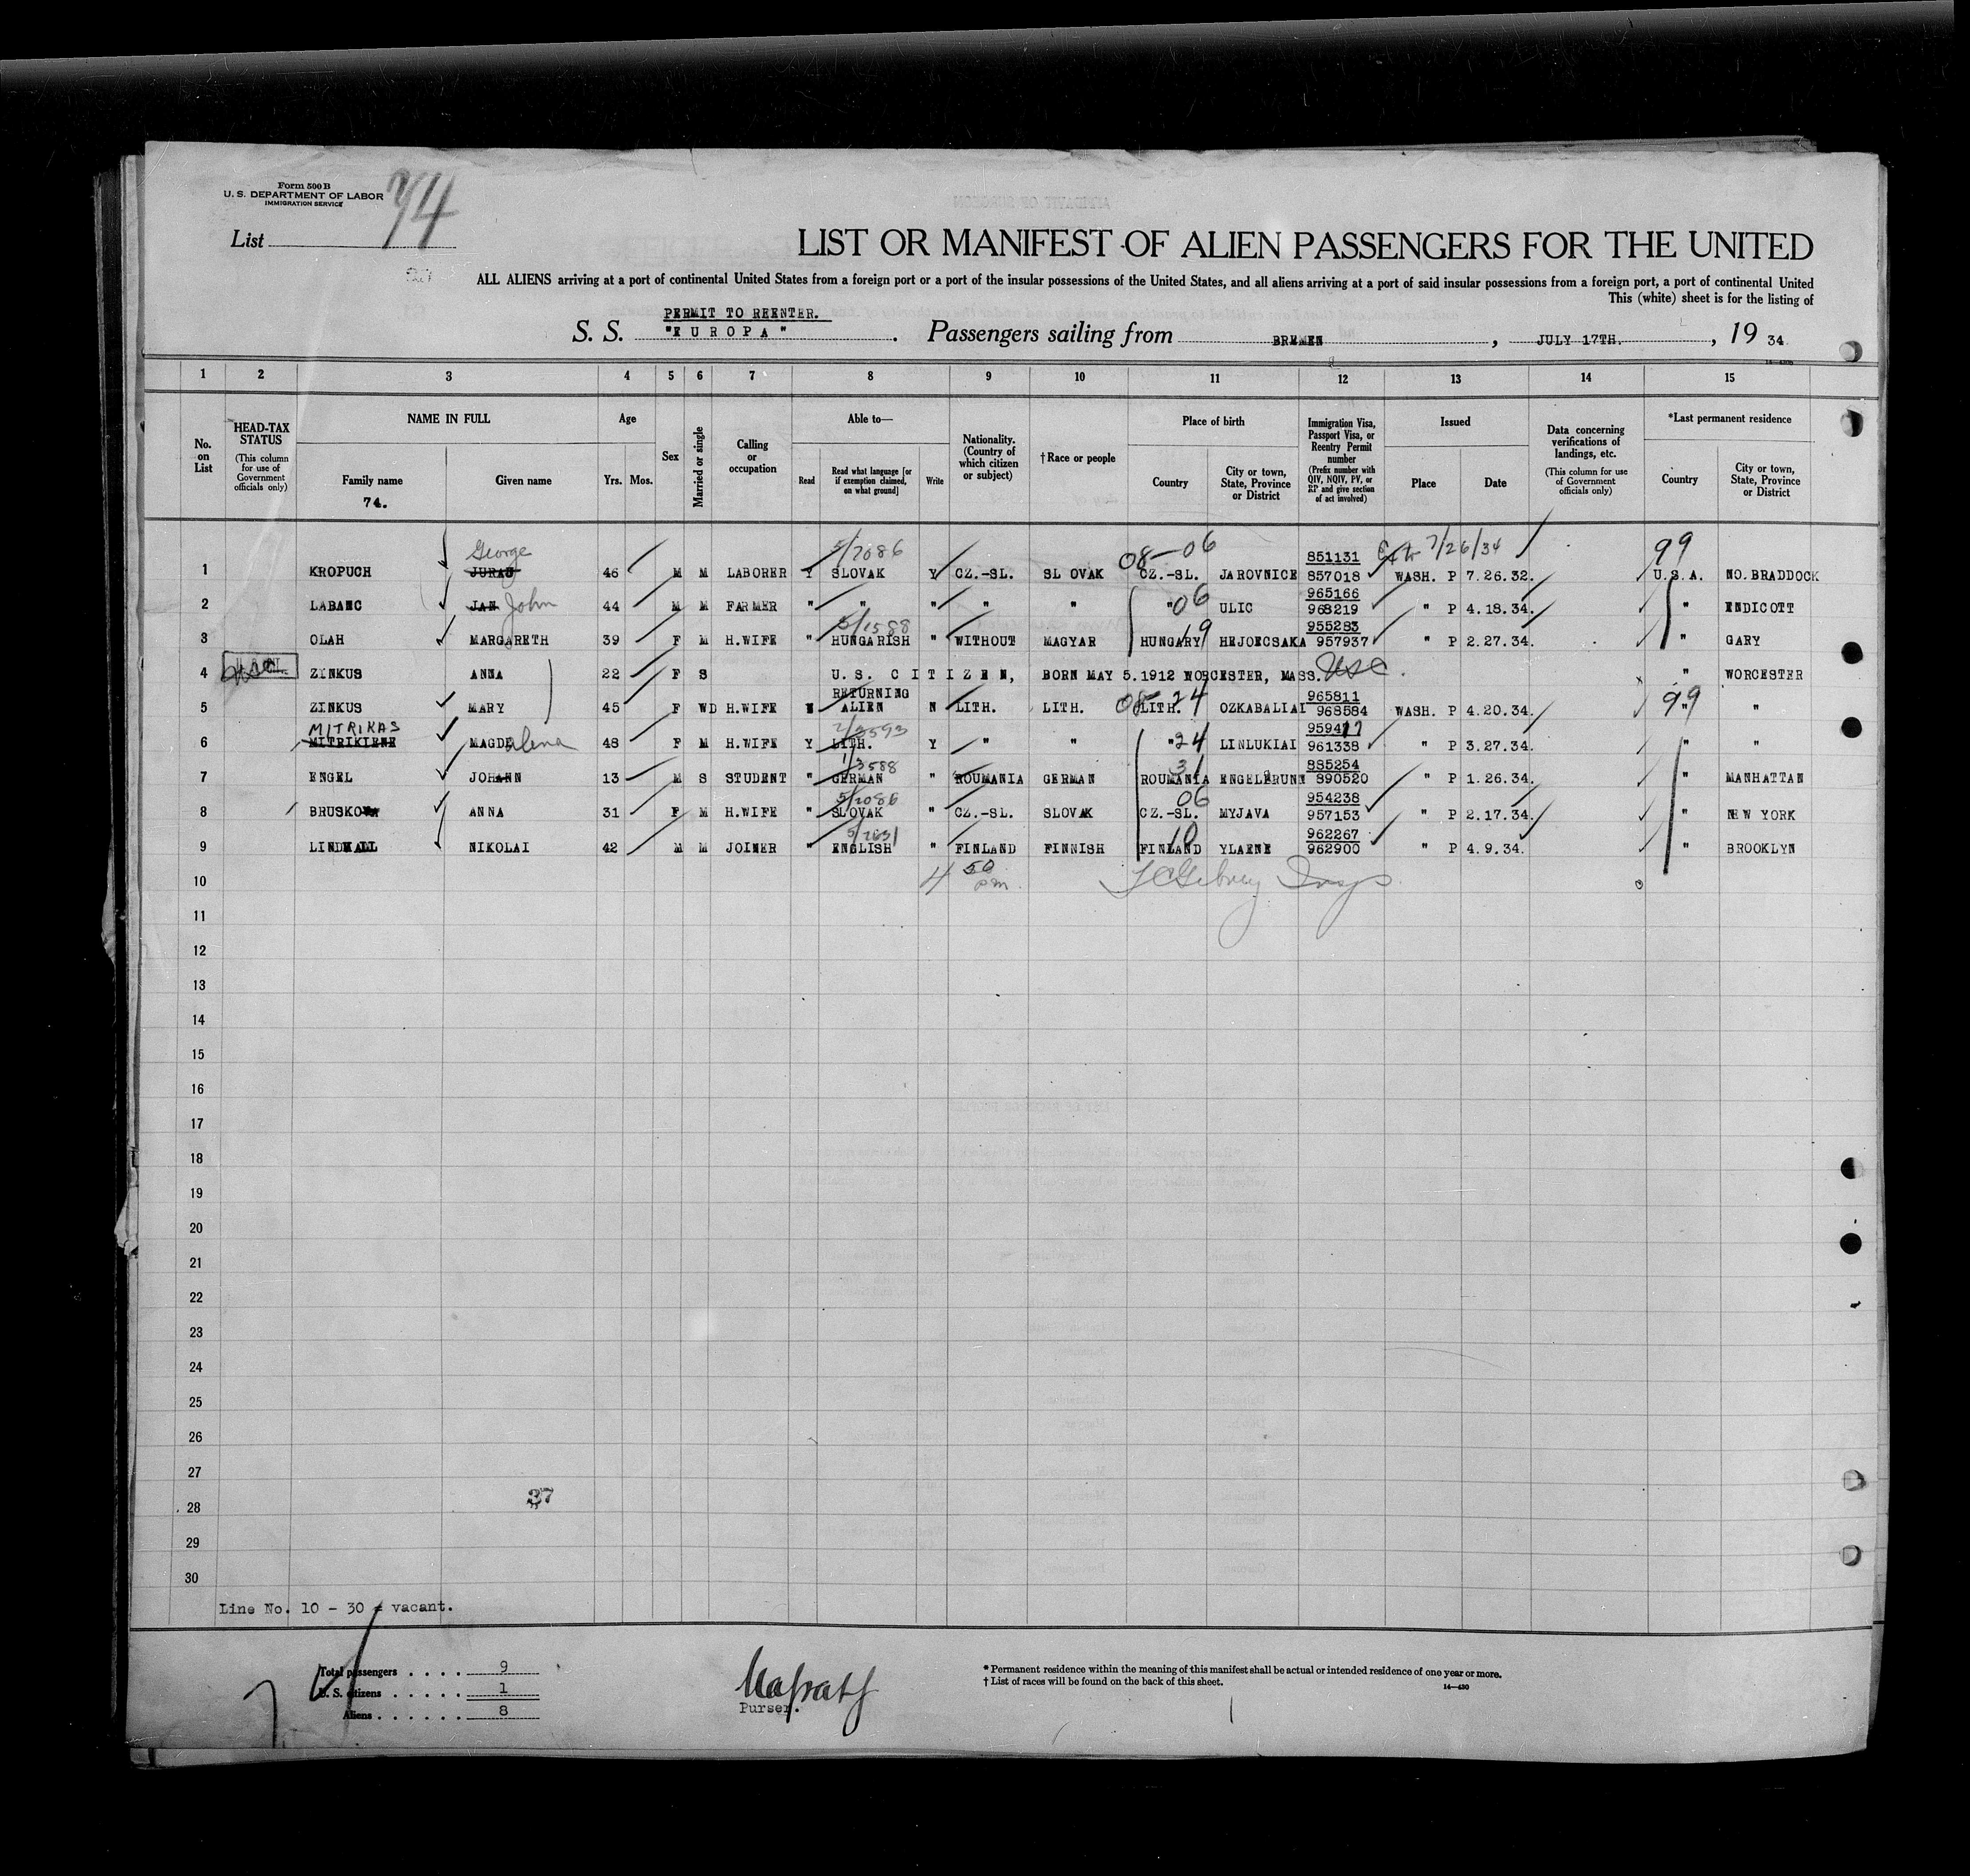 Form 500 B
U. S. DEPARTMENT OF LABOR
IMMIGRATION SERVICE
74
List
LIST OR MANIFEST OF ALIEN PASSENGERS FOR THE UNITED
ALL ALIENS arriving at a port of continental United States from a foreign port or a port of the insular possessions of the United States, and all aliens arriving at a port of said insular possessions from a foreign port, a port of continental United
This (white) sheet is for the listing of
PERMIT TO REENTER.
S. S. "EUROPA". Passengers sailing from BREMEN, JULY 17TH., 19 34
1 2 3 4 5 6 7 8 9 10 11 12 13 14 15
No. on List
HEAD-TAX STATUS (This column for use of Government officials only)
NAME IN FULL
Family name
74.
Given name
Age
Yrs. Mos.
Sex
Married or single
Calling or occupation
Able to—
Read
Read what language [or if exemption claimed, on what ground]
Write
Nationality. (Country of which citizen or subject)
†Race or people
Place of birth
Country
City or town, State, Province or District
Immigration Visa, Passport Visa, or Reentry Permit number (Prefix number with QIV, NQIV, PV, or RP and give section of act involved)
Issued
Place
Date
Data concerning verifications of landings, etc. (This column for use of Government officials only)
*Last permanent residence
Country
City or town, State, Province or District
George 5/2086 08-06 851131 7/26/34 99
1 KROPUCH JURAJ 46 M M LABORER Y SLOVAK Y CZ.-SL. SLOVAK CZ.-SL. JAROVNICE 857018 WASH. P 7.26.32. U.S.A. NO.BRADDOCK
965166
2 LABANC JAN John 44 M M FARMER " " " " " " 06 ULIC 968219 " P 4.18.34. " ENDICOTT
5/1588 955283
3 OLAH MARGARETH 39 F M H.WIFE " HUNGARISH " WITHOUT MAGYAR HUNGARY 19 HEJOECSAKA 957937 " P 2.27.34. " GARY
4 USC ZINKUS ANNA 22 F S U.S. CITIZEN, BORN MAY 5.1912 WORCESTER, MASS. USC. " WORCESTER
RETURNING 08-24 965811 99
5 ZINKUS MARY 45 F WD H.WIFE N ALIEN N LITH. LITH. LITH. OZKABALIAI 968584 WASH. P 4.20.34. " "
MITRIKAS 2/3593 959417
6 MITRIKIENE MAGDalena 48 F M H.WIFE Y LITH. Y " " " 24 LINLUKIAI 961338 " P 3.27.34. " "
1/3588 31 885254
7 ENGEL JOHANN 13 M S STUDENT " GERMAN " ROUMANIA GERMAN ROUMANIA ENGELBRUNN 890520 " P 1.26.34. " MANHATTAN
5/2086 06 954238
8 BRUSKOVA ANNA 31 F M H.WIFE " SLOVAK " CZ.-SL. SLOVAK CZ.-SL. MYJAVA 957153 " P 2.17.34. " NEW YORK
10 962267
9 LINDWALL NIKOLAI 42 M M JOINER " ENGLISH " FINLAND FINNISH FINLAND YLAENE 962900 " P 4.9.34. " BROOKLYN
10 4 50 pm
11
12
13
14
15
16
17
18
19
20
21
22
23
24
25
26
27
28 37
29
30
Line No. 10 - 30 = vacant.
Total passengers . . . . 9
U. S. citizens . . . . . 1
Aliens . . . . . . 8
Purser.
* Permanent residence within the meaning of this manifest shall be actual or intended residence of one year or more.
† List of races will be found on the back of this sheet.
14—430